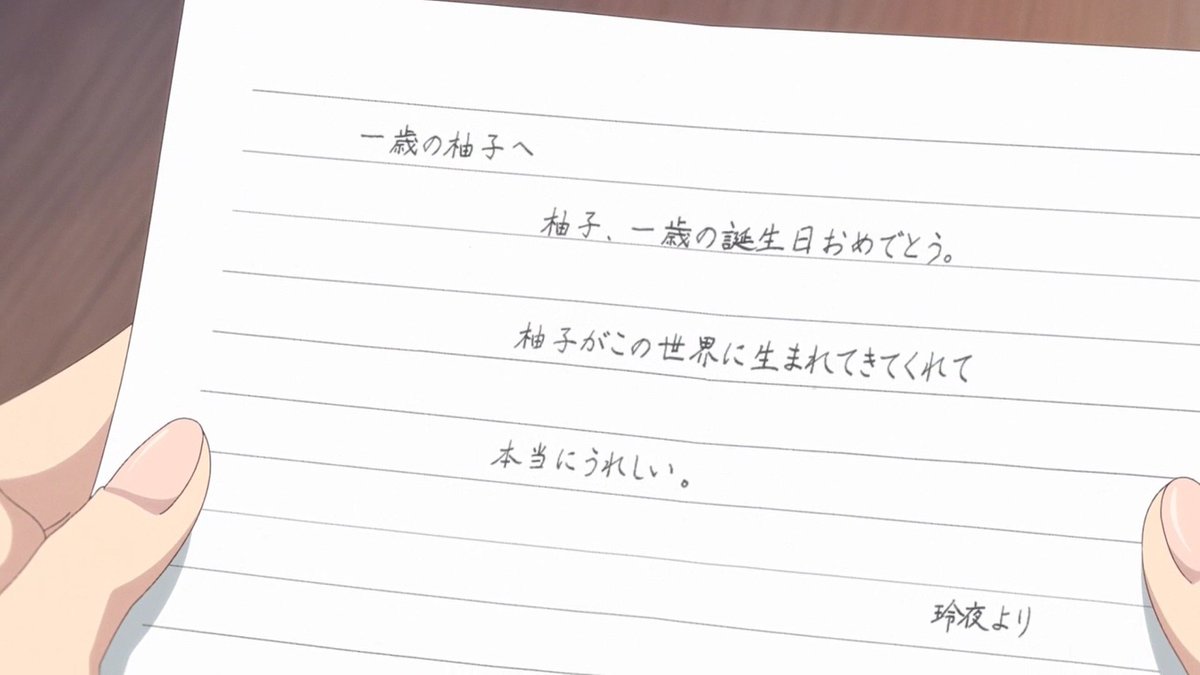 一歳の柚子へ
柚子、一歳の誕生日おめでとう。
柚子がこの世界に生まれてきてくれて
本当にうれしい。
玲夜より